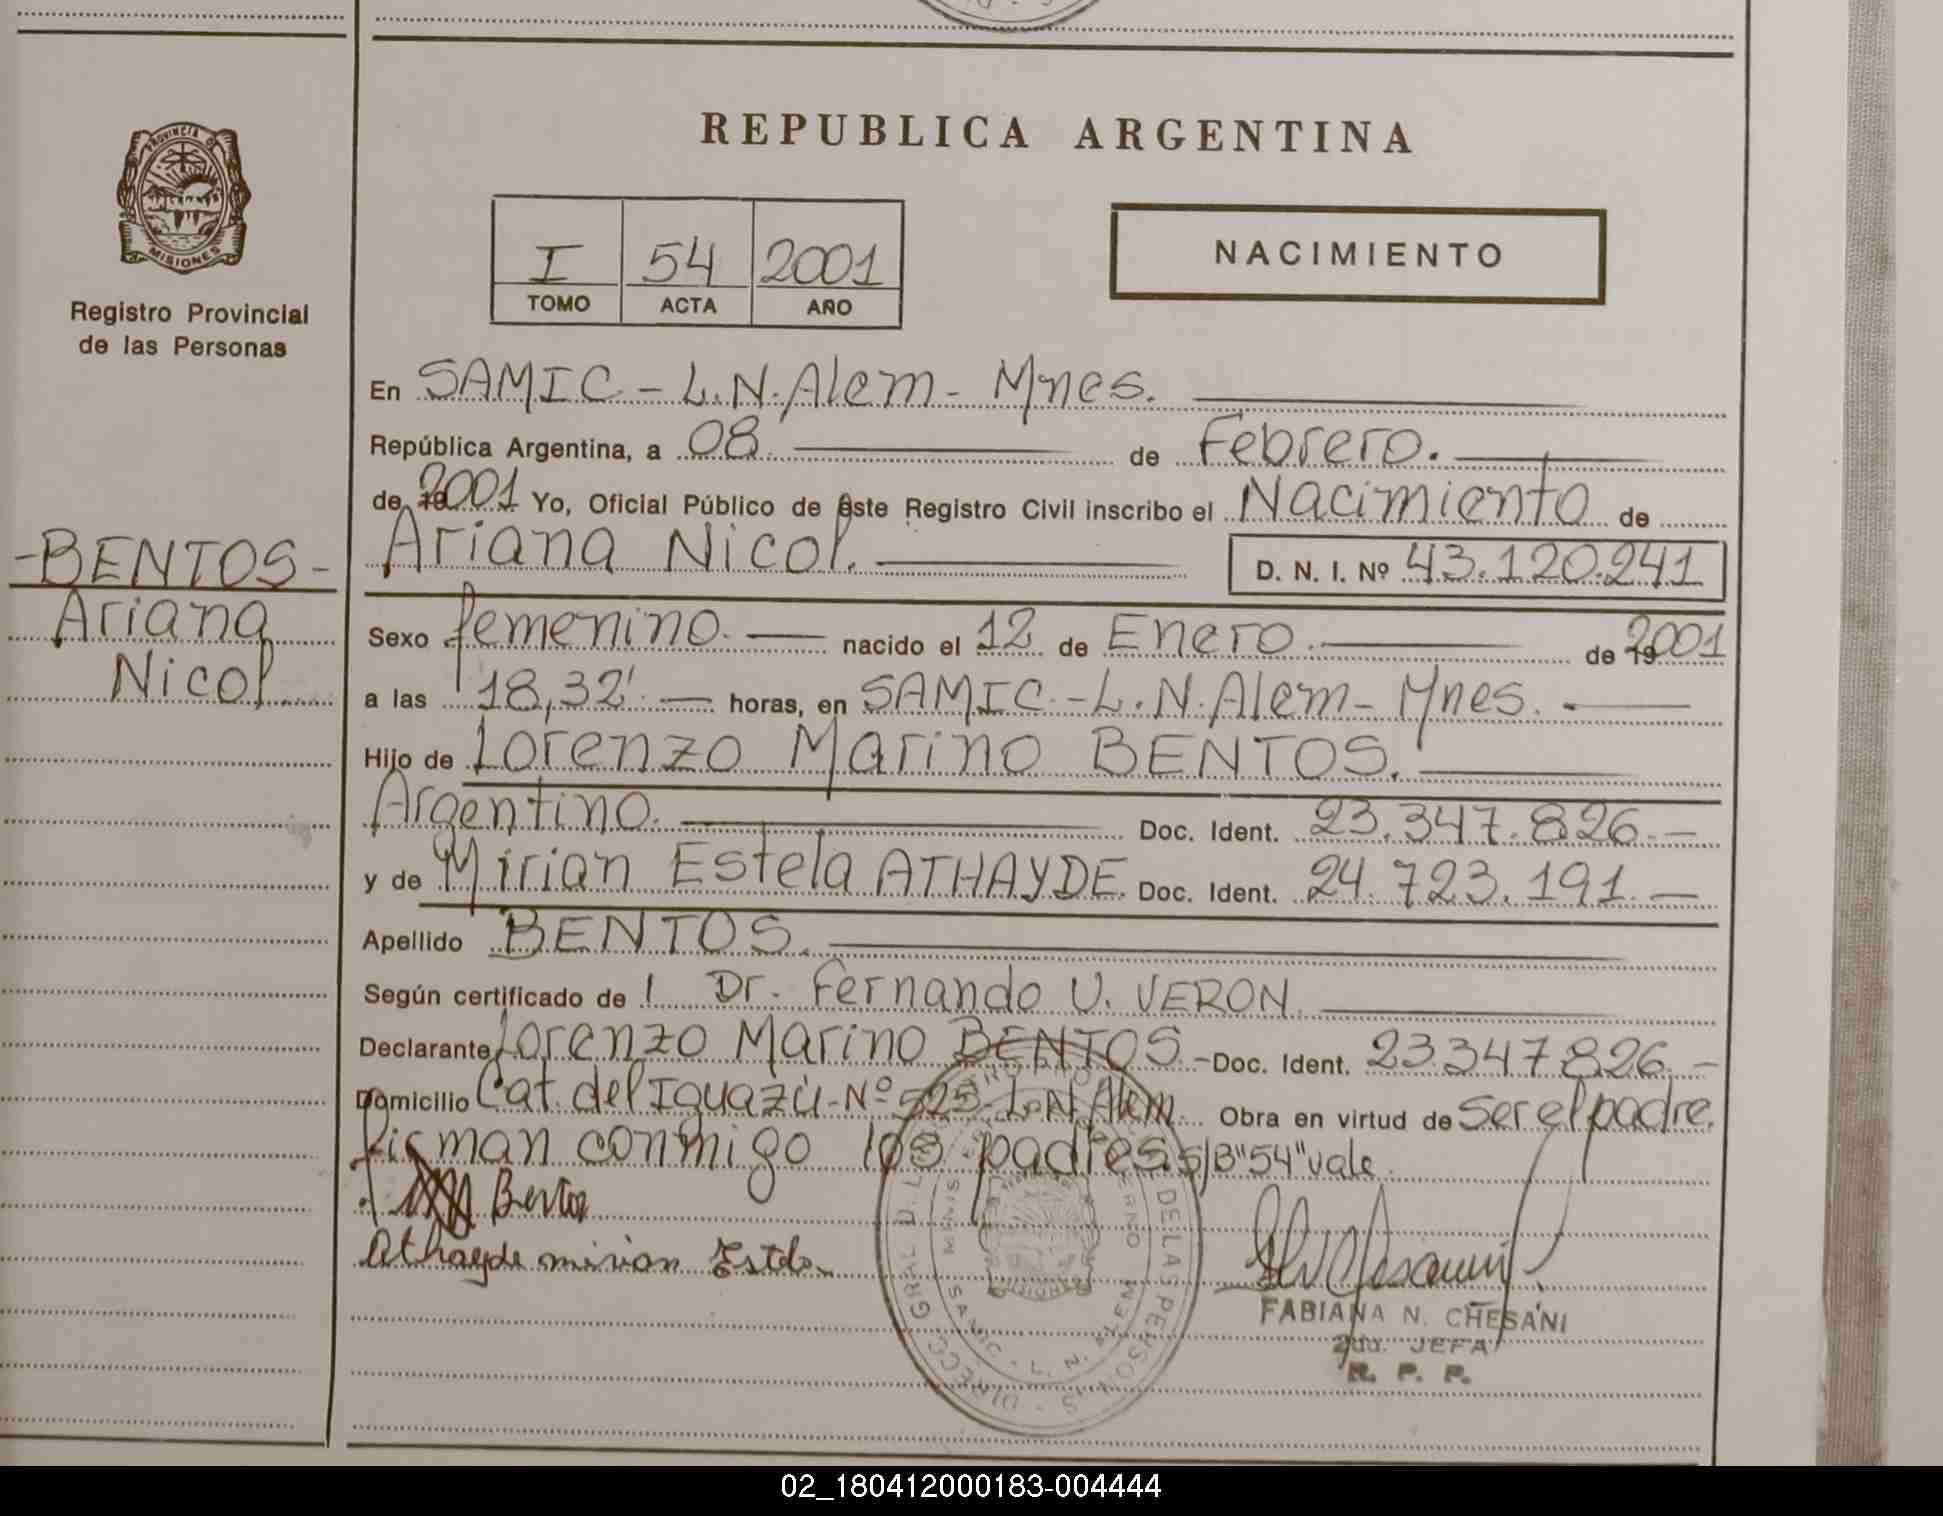 PROVINCIA DE
MISIONES
Registro Provincial
de las Personas
-BENTOS-
Ariana
Nicol
REPUBLICA ARGENTINA
I 54 2001
TOMO ACTA AÑO
NACIMIENTO
En SAMIC - L.N. Alem - Mnes.
República Argentina, a 08 de Febrero.
de 19 2001 Yo, Oficial Público de este Registro Civil inscribo el Nacimiento de
Ariana Nicol. D. N. I. Nº 43.120.241
Sexo femenino. nacido el 12 de Enero. de 19 2001
a las 18,32' horas, en SAMIC.-L.N. Alem- Mnes.
Hijo de Lorenzo Marino BENTOS.
Argentino. Doc. Ident. 23.347.826.-
y de Mirian Estela ATHAYDE. Doc. Ident. 24.723.191.-
Apellido BENTOS.
Según certificado de 1 Dr. Fernando U. VERON.
Declarante Lorenzo Marino BENTOS.- Doc. Ident. 23.347.826.-
Domicilio Cat. del Iguazú-Nº 525-L.N. Alem. Obra en virtud de ser el padre.
firman conmigo los padres s/B "54" vale.
Bentos
Athayde mirian Estela
DE LAS PERSONAS
SAMIC - L. N. ALEM
FABIANA N. CHESANI
2da. JEFA
R. P. P.
02_180412000183-004444